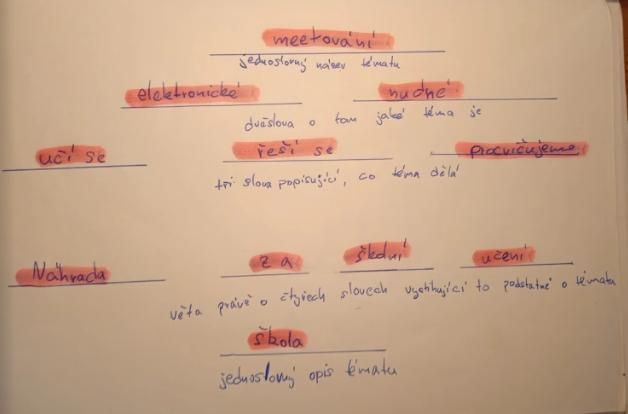 meetování
jednoslovný název tématu
elektronické nudné
dvě slova o tom jaké téma je
učí se řeší se procvičujeme
tři slova popisující, co téma dělá
Náhrada za školní učení
věta právě o čtyřech slovech vystihující to podstatné o tématu
škola
jednoslovný opis tématu